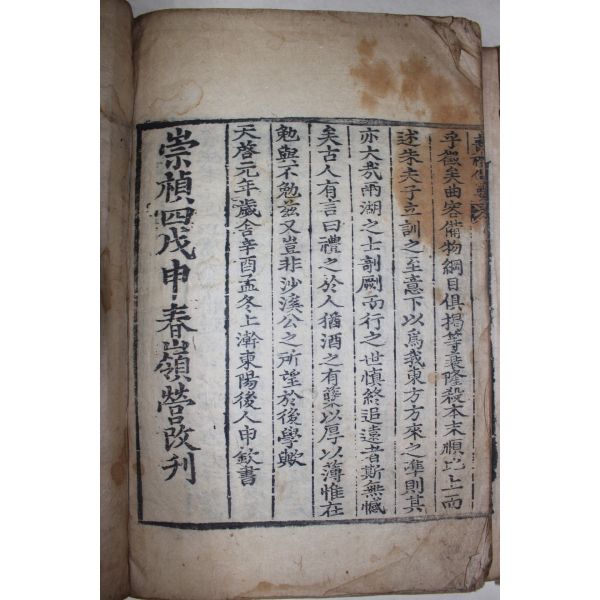 乎微矣曲容備物綱目俱揭等衰隆殺本末順比上而
述朱夫子立訓之至意下以爲我東方方來之準則其
亦大哉兩湖之士剞劂而行之世慎終追遠者斯無憾
矣古人有言曰禮之於人猶酒之有蘖以厚以薄惟在
勉與不勉茲又豈非沙溪公之所望於後學歟
天啓元年歲舍辛酉孟冬上澣東陽後人申欽書
崇禎四戊申春嶺營改刊